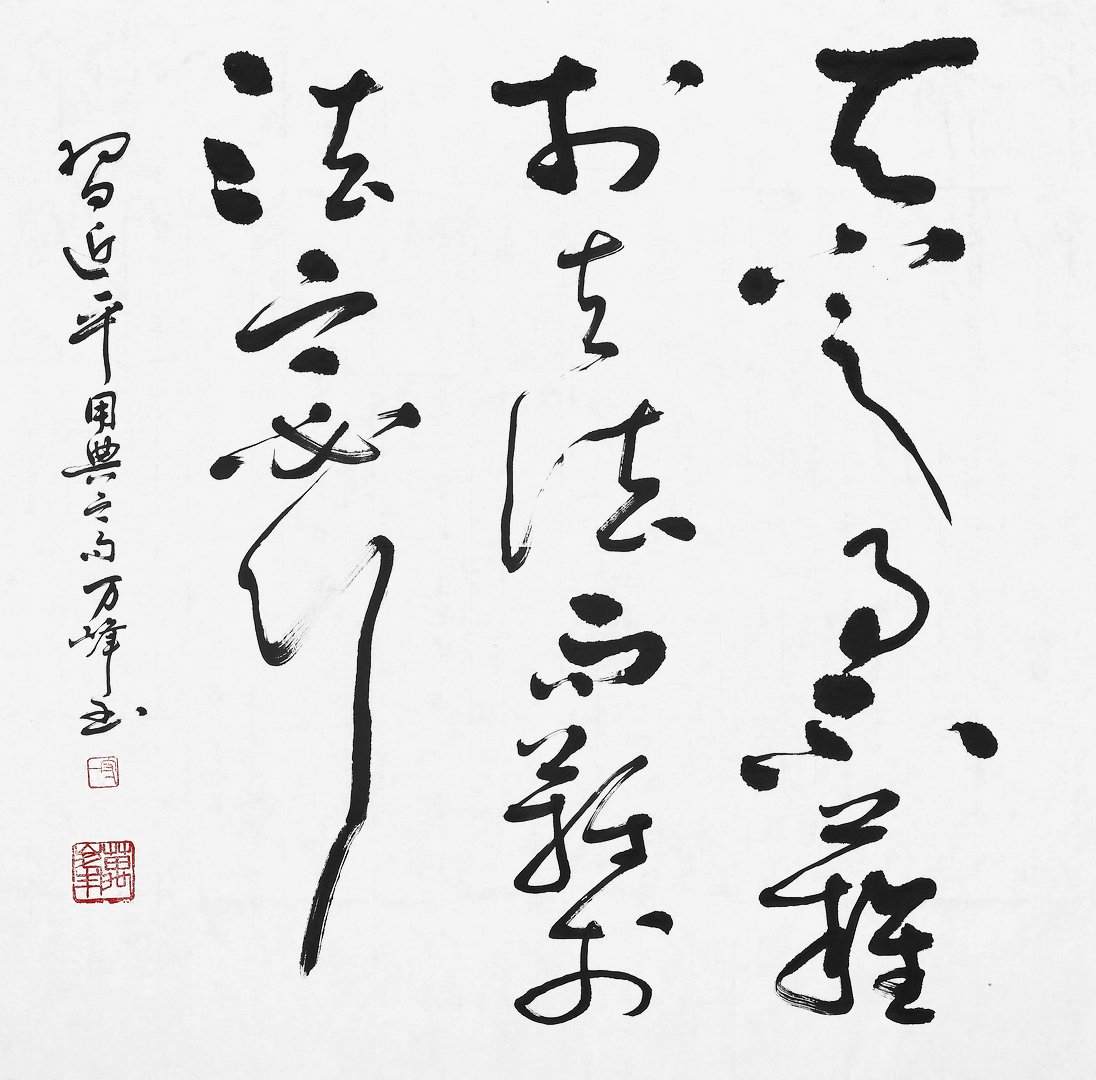 天下之事不難
於立法而難於
法之必行
習近平用典之句万峰书